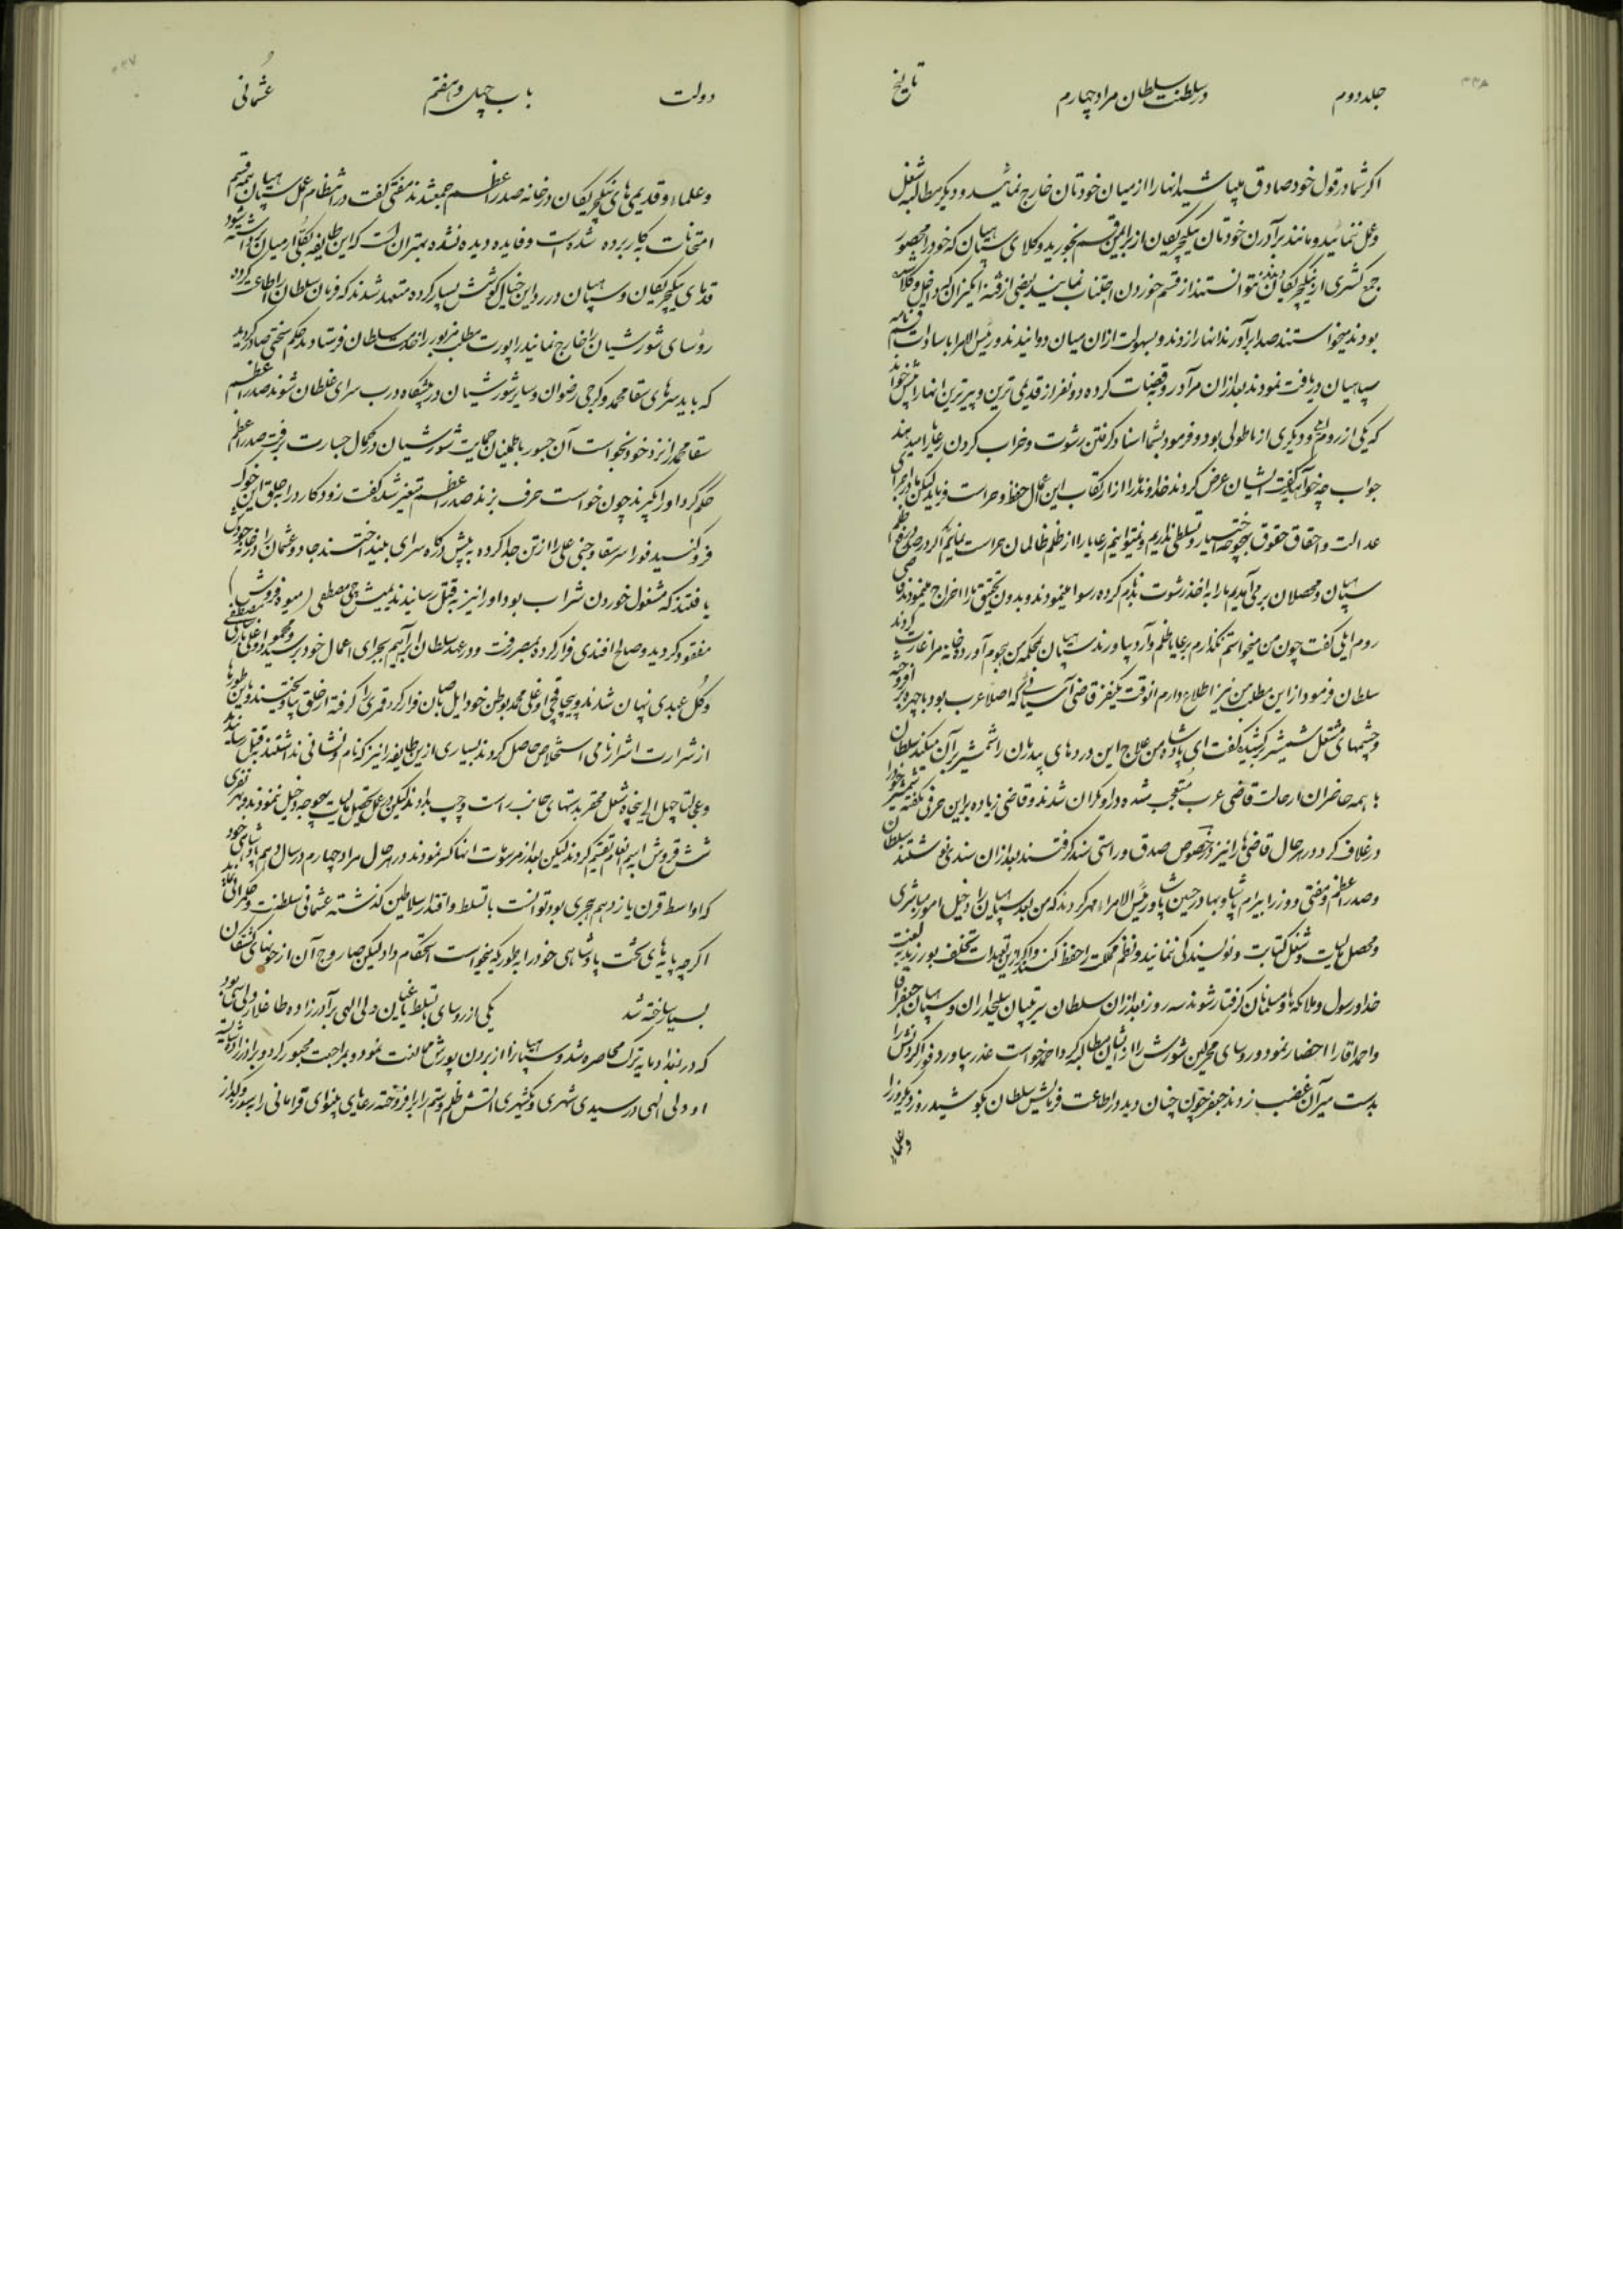 جلد دوم در سلطنت سلطان مراد چهارم تاریخ
اکر شما در قول خود صادق میباشید انها را از میان خودتان خارج نمائید و دیکر مطالبه شغل
و عمل ننمائید و مانند برادرن خودتان ینکیچریکان از برای من قسم بخورید وکلای سپاهیان که خود را محصور
جمع کثیری از ینکیچریکان دیدند نتوانستند از قسم خوردن اجتناب نمایند بعضی از فتنه انکیزان که داخل وکلا
بودند میخواستند صدا برآورند انها را زدند و بسهولت ازان میان دوانیدند و رئیس الامرا با سادات قسم نامه
سپاهیان دریافت نمودند بعد ازان مراد رو بقضات کرده دو نفر از قدیمی ترین و پیرترین انها را پیش خواند
که یکی از روم ایلی و دیکری از اناطولی بود و فرمود بشما اسناد کرفتن رشوت و خراب کردن رعایا میدهند
جواب چه خواهید کفت ایشان عرض کردند خداوند ما را از ارتکاب این اعمال حفظ و حراست فرماید لیکن ما در اجرای
عدالت و احقاق حقوق هیچوجه اختیار و تسلطی نداریم و نمیتوانیم رعایا را از ظلم ظالمان حراست نمائیم اکر در صدد رفع ظلم
سپاهیان و محصلان بر می آمدیم ما را به اخذ رشوت متهم کرده رسوا مینمودند و بدون تحقیق ما را اخراج مینمودند قاضی
روم ایلی کفت چون من میخواستم نکذارم بر رعایا ظلم وارد بیاورند سپاهیان بمحکمه من هجوم آورده خانه مرا غارت کردند
سلطان فرمود از این مطلب من نیز اطلاع دارم انوقت یکنفر قاضی آسیائی که اصلا عرب بود با چهره بر افروخته
و چشمهای مشتعل شمشیر کشیده کفت ای پادشاه من علاج این دردهای بیدرمان را شمشیر بران میکند سلطان
با همه حاضران از حالت قاضی عرب متعجب شده در او نکران شدند و قاضی زیاده بر این حرفی نکفته شمشیر خود را
در غلاف کرد در هر حال قاضی ها را نیز در خصوص صدق و راستی سند کرفتند بعد ازان سندی نوشتند سلطان
و صدر اعظم و مفتی و وزرا بیرام پاشا و بهادر حسین پاشا و رئیس الامراء مهر کردند که من بعد سپاهیان را دخیل امور مباشری
و محصل مالیات و شغل کتابت و نویسندکی ننمایند و نظم مملکت را حفظ کنند و اکر از این تعهدات تخلف بورزند به لعنت
خدا و رسول و ملائکه ها و مسلمانان کرفتار شوند سه روز بعد ازان سلطان سرتیپان سلحداران و سپاهیان جعفر اقا
و احمد اقا را احضار نمود و روسای محرکین شورش را از ایشان مطالبه کرد احمد خواست عذر بیاورد فورا کردنش را
بدست میرآن غضب زدند جعفر چون چنان دید در اطاعت فرمایش سلطان بکوشید روز دیکر وزرا
و علماء
دولت باب چهل و هفتم عثمانی
و علماء و قدیمی های ینکیچریکان در خانه صدر اعظم جمع شدند مفتی کفت در انتظام عمل سپاهیان همه قسم
امتحانات بکار برده شده است و فایده دیده نشده بهتر آن است که این طایفه بکلی از میان برداشته شود
قدمای ینکیچریکان و سپاهیان در رد این خیال کوشش بسیار کرده متعهد شدند که فرمان سلطان را اطاعت کرده
روسای شورشیان را خارج نمایند راپورت مطلب مزبور را خدمت سلطان فرستادند حکم سختی صادر کردید
که باید سرهای سقا محمد و کرجی رضوان و سایر شورشیان در پیشکاه درب سرای غلطان شوند صدر اعظم
سقا محمد را نزد خود بخواست آن جسور باطمینان حمایت شورشیان در کمال جسارت برفت صدر اعظم
حکم کرد او را بکیرند چون خواست حرف بزند صدر اعظم متغیر شد کفت زود کارد را به حلق این خوک
فرو کنید فورا سر سقا و جنی علی را از تن جدا کرده به پیش درکاه سرای بینداختند جادو عثمان را در خانه خودش
یافتند که مشغول خوردن شراب بود او را نیز به قتل رسانیدند یمیش چی مصطفی (میوه فروش)
مفقود کردید و صالح افندی فرار کرده بمصر رفت و در عهد سلطان ابراهیم بجزای اعمال خود برسید
و کل عبدی پنهان شدند و پیچاقچی اوغلی محمد بوطن خود فرار کرد قمری را کرفته از خلق بیاویختند و باین طورها
از شرارت اشرار نامی استخلاص حاصل کردند بسیاری از این طایفه را نیز که نام و نشانی نداشتند بقتل رسانیدند
و عجالتا چهل الی پنجاه شغل محقر بدستهای جانب راست و چپ دادند لیکن در عمل تحصیل مالیات بهیچوجه دخیل ننمودند و بهر نفری
شش قروش برسم انعام تقسیم کردند لیکن بعد از مرسومات انها کسر نمودند در هر حال مراد چهارم در سال دهم پادشاهی خود
که اواسط قرن یازدهم هجری بود توانست با تسلط و اقتدار سلاطین کذشته عثمانی سلطنت و حکمرانی نماید
اکرچه پایه های تخت پادشاهی خود را بطوریکه میخواست استحکام داد لیکن صاروج آن از خونهای کشتکان
بسیار ساخته شد یکی از روسای با تسلط یاغیان ولی الهی برآدرزاده طاغلار دلیسی بود
که در بغداد مایه ترک محاصره شد و سپاه را از بردن یورش ممانعت نمود و بمراجعت مجبور کرد و برادرزاده
او ولی الهی در سیدی شهری و بکشهری اتش ظلم و ستم را برافروخته رعایای بینوای قرامانی را به سوز و کداز